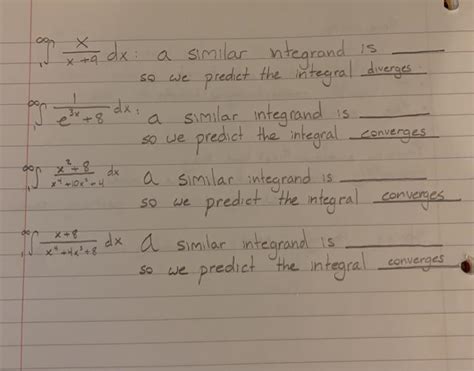 ∞∫₁ x/(x+9) dx: a similar ntegrand is ______
so we predict the integral diverges
∞∫₁ 1/(e^(3x)+8) dx: a similar integrand is ______
so we predict the integral converges
∞∫₁ (x²+8)/(x⁴+10x²+4) dx a similar integrand is ______
so we predict the integral converges
∞∫₁ (x+8)/(x⁴+4x³+8) dx A similar integrand is ______
so we predict the integral converges